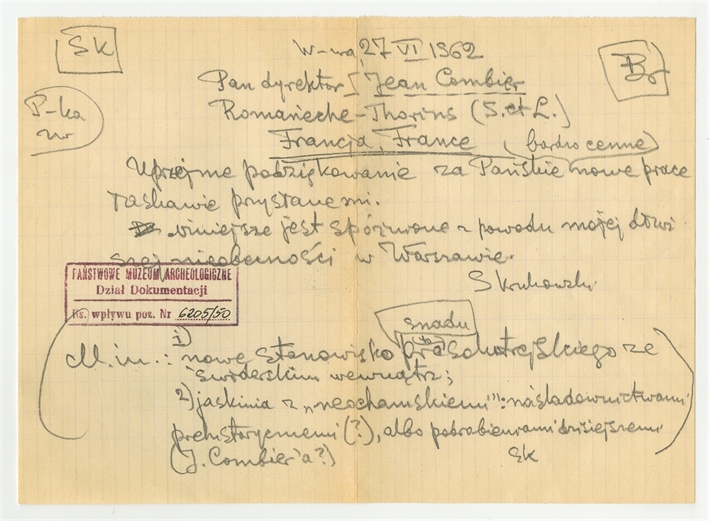 SK
W-wa, 27 VI 1962
Br
Pan dyrektor Jean Combier
P-ka
nr
Romanèche-Thorins (S. et L.)
Francja, France (bardzo cenne)
Uprzejme podziękowanie za Pańskie nowe prace
łaskawie przysłane mi.
niniejsze jest spóźnione z powodu mojej dłuż
szej nieobecności w Warszawie.
S Krukowski
PAŃSTWOWE MUZEUM ARCHEOLOGICZNE
Dział Dokumentacji
Ks. wpływu poz. Nr 6205/50
śnadu
M. in.: 1) nowe stanowisko prasolutrejskiego ze
świderskim wewnątrz;
2) jaskinia z „neochamskiemi": naśladownictwami
prehistorycznemi (?), albo podrabieniami dzisiejszemi
(J. Combier'a?)
SK